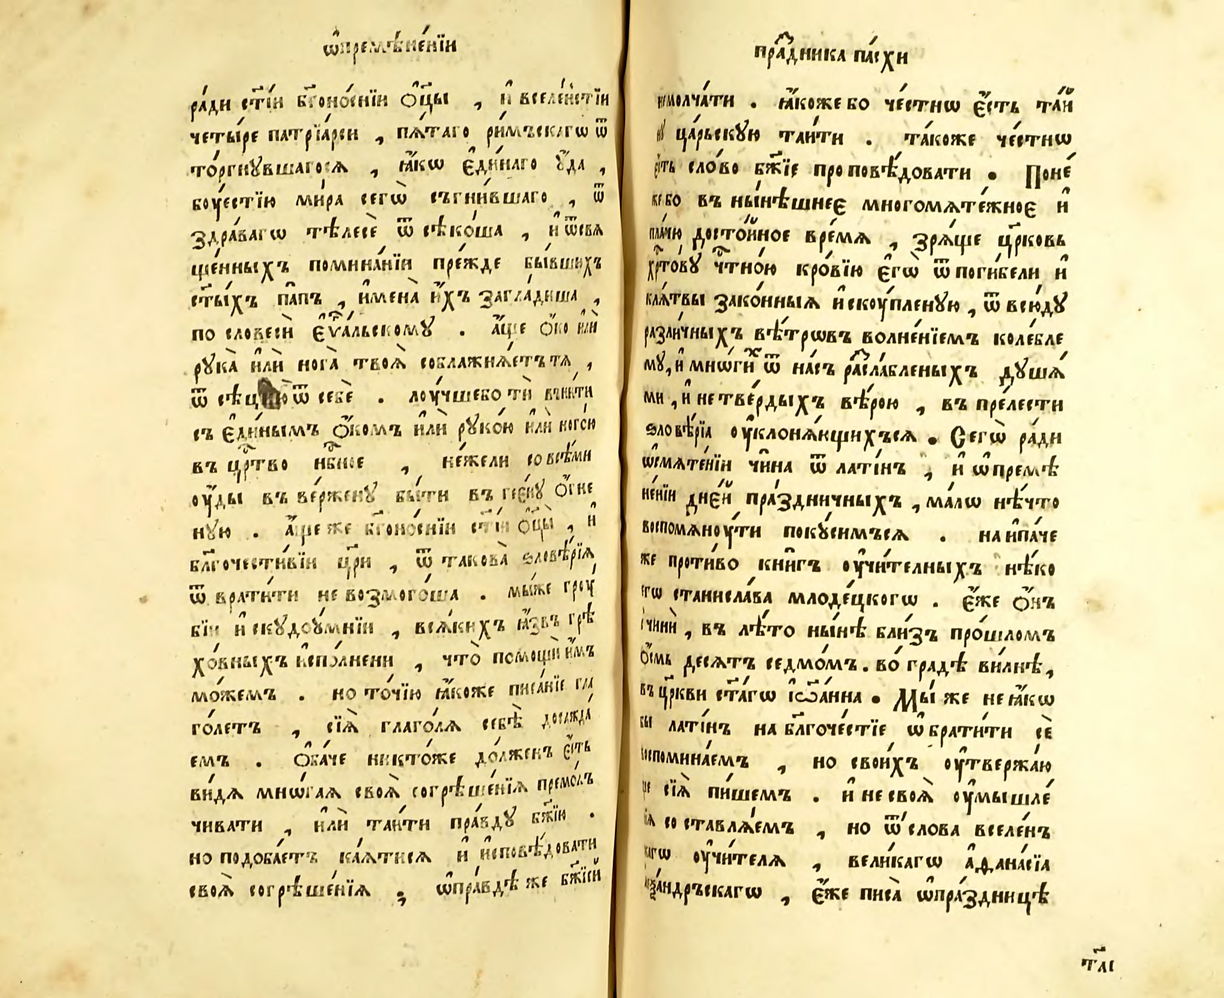 ѿпремѣне́нїи
ра́ди ст҃і́и бг҃оно́снїи ѻ҆ц҃ы , и҆ вселе́нстїи
четы́ре патрїа́рси , пѧ́таго ри́мъскагѡ ѿ
то́ргнꙋвшагосѧ , ꙗ҆́кѡ є҆ди́наго ᲂу҆́да ,
боу́естїю ми́ра сегѡ̀ съгни́вшаго , ѿ
здра́вагѡ тѣ́лесѐ ѿ сѣко́ша , и҆ ѿсвѧ
ще́нныхъ помина́нїи пре́жде бы́вшихъ
ст҃ы́хъ па́пъ , и҆мена̀ и҆́хъ загла́диша ,
по словеси̏ є҆ѵⷢ҇а́льскомꙋ . а҆́ще ѻ҆́ко и҆лѝ
рꙋка̀ и҆лѝ нога̀ твоѧ̀ соблажнѧ́етътѧ ,
ѿ сѣцы̀ ю҆̀ ѿ себѐ . лоу́чшебо тѝ вни́ти
съ є҆ди́нымъ ѻ҆́комъ и҆лѝ рꙋко́ю и҆лѝ ного́ю
въ црⷭ҇тво нбⷭ҇ное , не́жели совсѣ́ми
оу҆́ды въ ве́рженꙋ бы́ти въ гее́нꙋ ѻ҆́гне
нꙋю . а҆́ще же бг҃оно́снїи ст҃і́и ѻ҆ц҃ы̀ , и҆
бл҃гочести́вїи цр҃и , ѿ такова̀ ѕловѣ́рїѧ
ѿ врати́ти не возмого́ша . мы́же гроу́
бїи и҆ скꙋдоу́мнїи , всѧ́кихъ ꙗ҆́звъ грѣ
хо́вныхъ и҆спо́лнени , что̀ помощѝ и҆̀мъ
мо́жемъ . но то́чїю ꙗ҆́коже писа́нїе гла
го́летъ , сїѧ̀ глаго́лѧ себѣ̀ досажда́
емъ . ѻ҆ба́че никто́же до́лженъ є҆́сть
ви́дѧ мнѡ́гаѧ своѧ̀ согрѣше́нїѧ премол
чивати , и҆лѝ таи́ти пра́вдꙋ бж҃їю .
но подоба́етъ ка́ѧтисѧ и҆ и҆сповѣ́довати
своѧ̀ согрѣше́нїѧ , ѡ҆пра́вдѣ же бж҃їей
пра́здника па́схи
немолча́ти . ꙗ҆́коже бо че́стнѡ є҆́сть та́й
нꙋ ца́рьскꙋю таи́ти . та́коже че́стнѡ
є҆́сть сло́во бж҃їе проповѣ́довати . Поне́
же бо въ ны́нѣшнее многомѧте́жное и҆
пла́чю досто́йное вре́мѧ , зрѧ́ще цр҃ковь
хрⷭ҇то́вꙋ чⷭ҇тно́ю кро́вїю є҆гѡ̀ ѿ поги́бели и҆
клѧ́твы зако́нныѧ и҆скоу́пленꙋю , ѿ всю́дꙋ
разли́чныхъ вѣ́трѡвъ волне́нїемъ коле́бле
мꙋ , и҆ мнѡ́гиⷯ ѿ на́съ разсла́бленыхъ дꙋша́
ми , и҆ нетве́рдыхъ вѣ́рою , въ пре́лести
ѕловѣ́рїа оу҆клонѧ́ющихъсѧ . Сегѡ̀ ра́ди
ѡ҆смѧте́нїи чи́на ѿ лати́нъ , и҆ ѡ҆премѣ
не́нїи дне́й пра́здничныхъ , ма́лѡ нѣ́что
воспомѧноу́ти покꙋси́мъсѧ . наипа́че
же проти́во кни́гъ оу҆чи́телныхъ нѣ́ко
егѡ станисла́ва младе́цкогѡ . є҆́же ѻ҆́нъ
, въ лѣ́то ны́нѣ бли́зъ про́шломъ
ѻ҆́смь деся́тъ седмо́мъ . во́ градѣ ви́лнѣ,
въ цр҃кви ст҃а́гѡ і҆ѡ҃а́нна . Мы́ же не ꙗ҆́кѡ
бы лати́нъ на бл҃гоче́стїе ѡ҆брати́ти сѐ
воспомина́емъ , но свои́хъ оу҆твержа́ю
ще сїѧ̀ пи́шемъ . и҆ не своѧ̀ оу҆мышле́
нїѧ со ставлѧ́емъ , но ѿ сло́ва вселе́нъ
скагѡ оу҆чи́телѧ , вели́кагѡ а҆ѳана́сїа
а҆леѯа́ндръскагѡ , є҆́же писа̀ ѡ҆пра́здницѣ
тл҃і